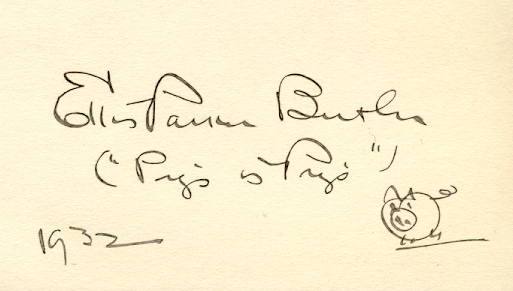 Ellis Parker Butler
("Pigs is Pigs")
1932